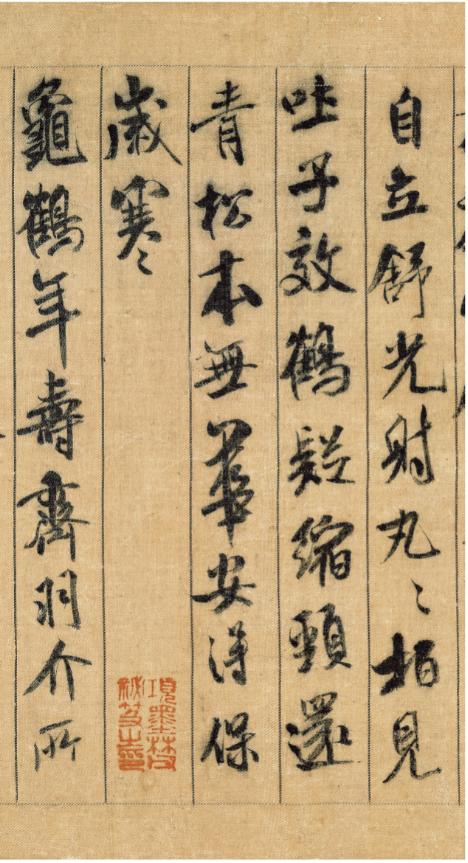 自立舒光射丸〻柏見
吐子效鶴疑縮頸還
青松本無華安得保
歲寒
項墨林父
祕笈之印
龜鶴年壽齊羽介所